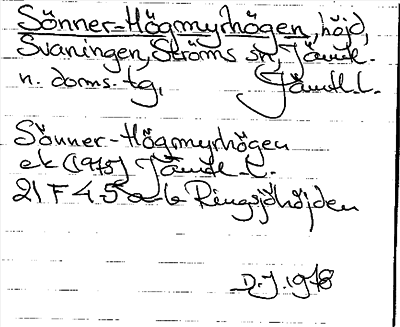 Sönner-Högmyrhögen, höjd,
Svaningen, Ströms sn, Jämtl.
n. doms. tg. Jämtl. l.
Sönner-Högmyrhögen
ek (1975) Jämtl. l.
21 F 4-5 a-b Ringsjöhöjden
D.J. 1978